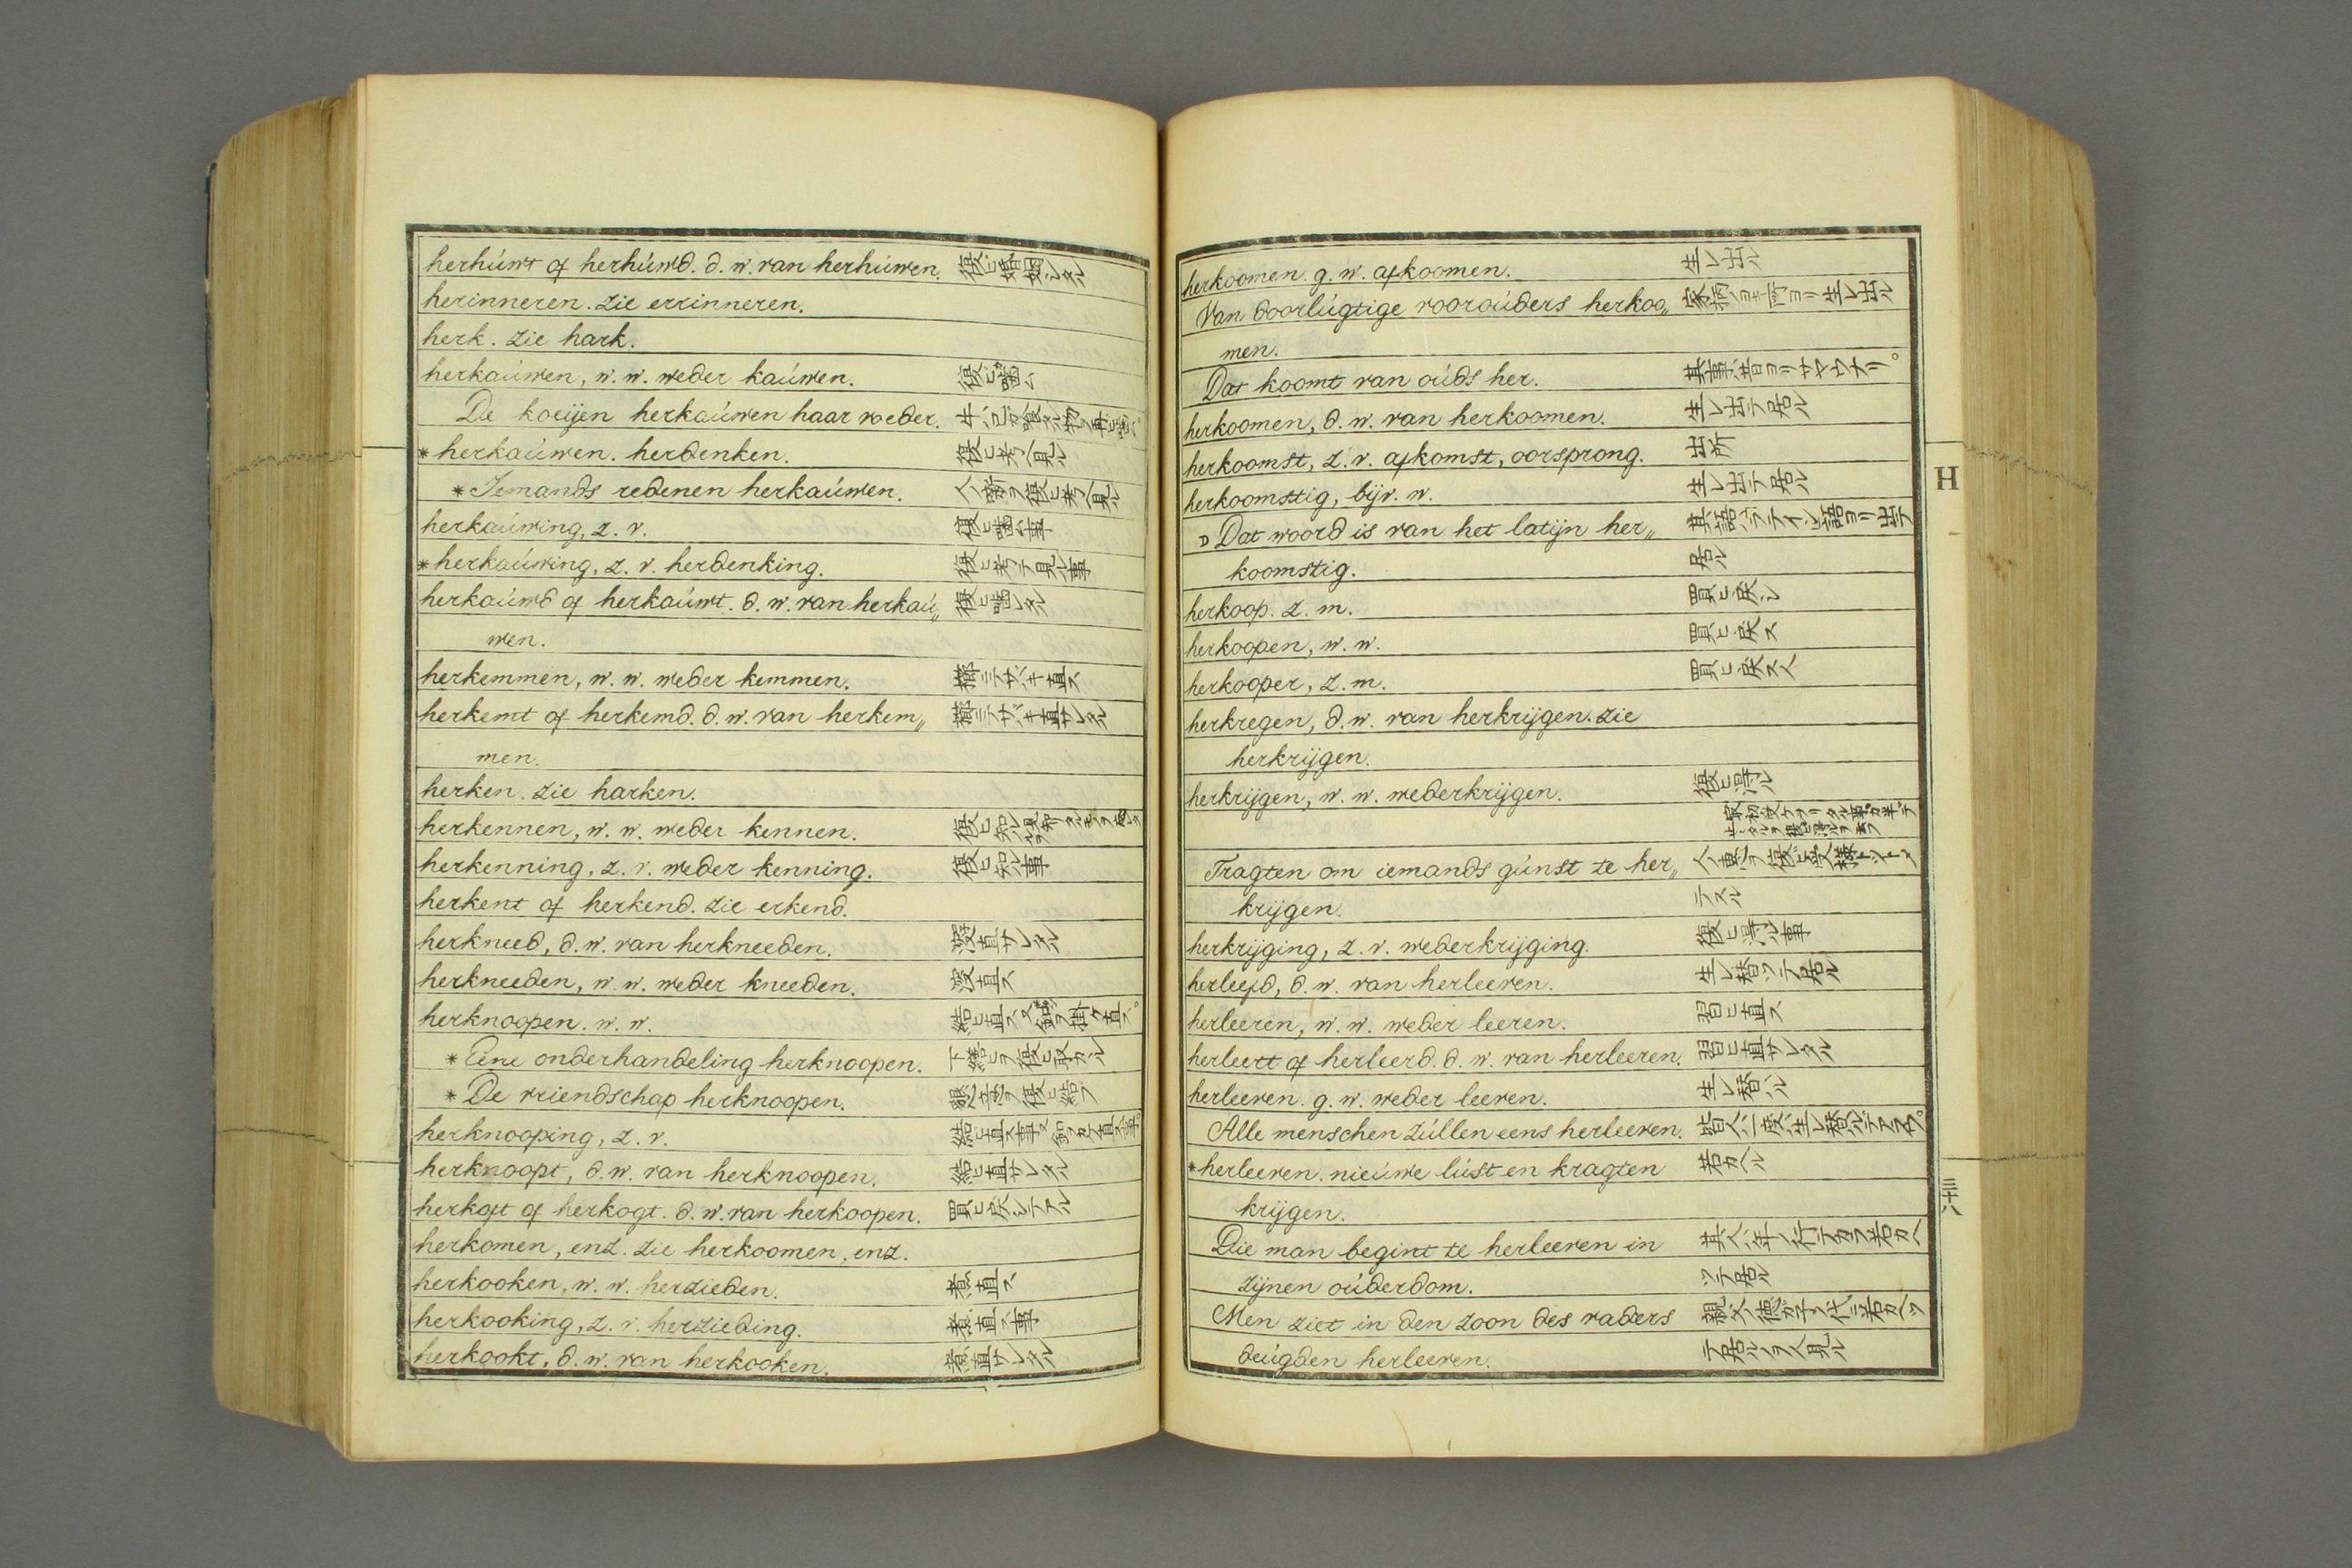 herhúwt of herhúwd. d. w. van herhúwen. 復ヒ婚姻シタル
herinneren. zie errinneren.
herk. zie hark.
herkaúwen, w. w. weder kaúwen. 復ヒ噛ム
De koeijen herkaúwen haar voeder.
*herkaúwen. herdenken. 復ヒ考ヘ見ル
*Iemands redenen herkaúwen. 復ヒ考ヘ見ル
herkaúwing, z. v. 復ヒ噛ム事
*herkaúwing, z. v. herdenking. 復ヒ考テ見ル事
herkaúwd of herkaúwt. d. w. van herkaú„ 復ヒ噛レタル
wen.
herkemmen, w. w. weder kemmen. 櫛ニテサバキ直ス
herkemt of herkemd. d. w. van herkem„ 櫛ニテサバキ直サレタル
men.
herken. zie harken.
herkennen, w. w. weder kennen. 復ヒ知ル
herkenning, z. v. weder kenning. 復ヒ知ル事
herkent of herkend. zie erkend.
herkneed, d. w. van herkneeden. 直サレタル
herkneeden, w. w. weder kneeden. 直ス
herknoopen. w. w. 結ヒ直ス
*Eene onderhandeling herknoopen.
*De vriendschap herknoopen. 懇意ヲ復ヒ結フ
herknooping, z. v. 結ヒ直ス事
herknoopt, d. w. van herknoopen. 結ヒ直サレタル
herkoft of herkogt. d. w. van herkoopen. 買ヒ戻シテアル
herkomen, enz. zie herkoomen, enz.
herkooken, w. w. herzieden. 煮直ス
herkooking, z. v. herzieding. 煮直ス事
herkookt, d. w. van herkooken. 煮直サレタル
herkoomen. g. w. afkoomen. 生レ出ル
Van doorlúgtige vooroúders herkoo„ 家柄ノヨキ所ヨリ生レ出ル
men.
Dat koomt van oúds her. 其事ハ昔ヨリサヤウナリ。
herkoomen, d. w. van herkoomen. 生レ出テ居ル
herkoomst, z. v. afkomst, oorsprong. 出所
herkoomstig, bijv. w. 生レ出テ居ル
Dat woord is van het latijn her„ 其語ハラテイン語ヨリ出テ
koomstig. 居ル
herkoop. z. m. 買ヒ戻シ
herkoopen, w. w. 買ヒ戻ス
herkooper, z. m. 買ヒ戻ス人
herkregen, d. w. van herkrijgen. zie
herkrijgen.
herkrijgen, w. w. wederkrijgen. 復ヒ得ル
Tragten om iemands gúnst te her„
krijgen. テスル
herkrijging, z. v. wederkrijging. 復ヒ得ル事
herleefd, d. w. van herleeven. 生レ替ツテ居ル
herleeren, w. w. weder leeren. 習ヒ直ス
herleert of herleerd. d. w. van herleeren. 習ヒ直サレタル
herleeven. g. w. weder leeven. 生レ替ル
Alle menschen zúllen eens herleeven.
*herleeven. nieúwe lúst en kragten 若カヘル
krijgen.
Die man begint te herleeven in
zijnen oúderdom. ツテ居ル
Men ziet in den zoon des vaders
deúgden herleeven. テ居ルヲ人見ル
H
三十八